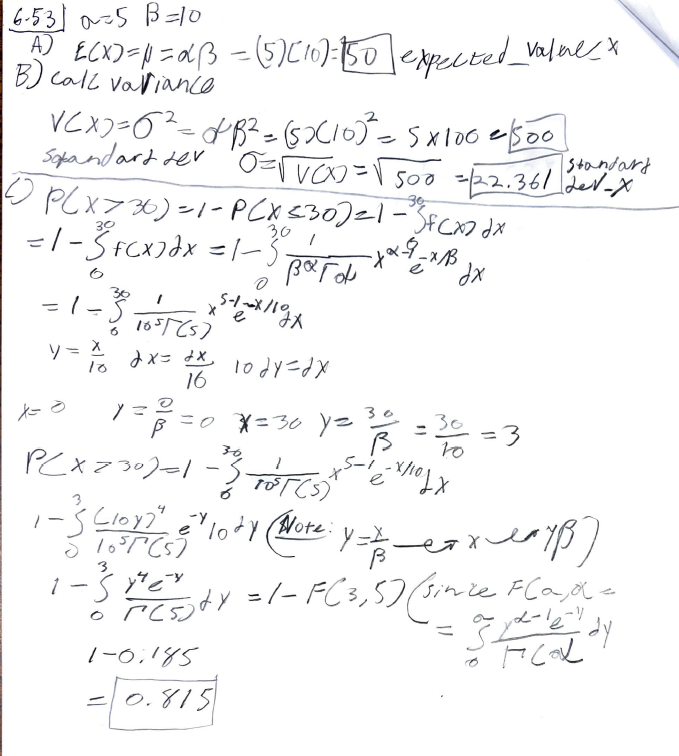 6.53) α=5 β=10
A) E(X)=μ=αβ=(5)(10)=50 expected_value_x
B) calc variance
V(X)=σ²=αβ²=(5)(10)²=5x100=500
standard dev σ=√V(X)=√500=22.361 standard dev_x
C) P(X>30)=1-P(X≤30)=1-∫³⁰f(x)dx
=1-∫₀³⁰f(x)dx=1-∫₀³⁰ 1/(β^αΓα) x^α-1 e^-x/β dx
=1-∫₀³⁰ 1/(10⁵Γ(5)) x^5-1 e^-x/10 dx
y=x/10 dx=dx/10 10dy=dx
x=0 y=0/β=0 x=30 y=30/β=30/10=3
P(X≥30)=1-∫₀³⁰ 1/(10⁵Γ(5)) x^5-1 e^-x/10 dx
1-∫₀³ (10y)⁴/(10⁵Γ(5)) e^-y 10dy (Note: y=x/β ↔ x ↔ yβ)
1-∫₀³ y⁴e^-y/Γ(5) dy=1-F(3,5) (since F(a,α=
=∫₀^a y^α-1 e^-y/Γ(α) dy
1-0.185
=0.815